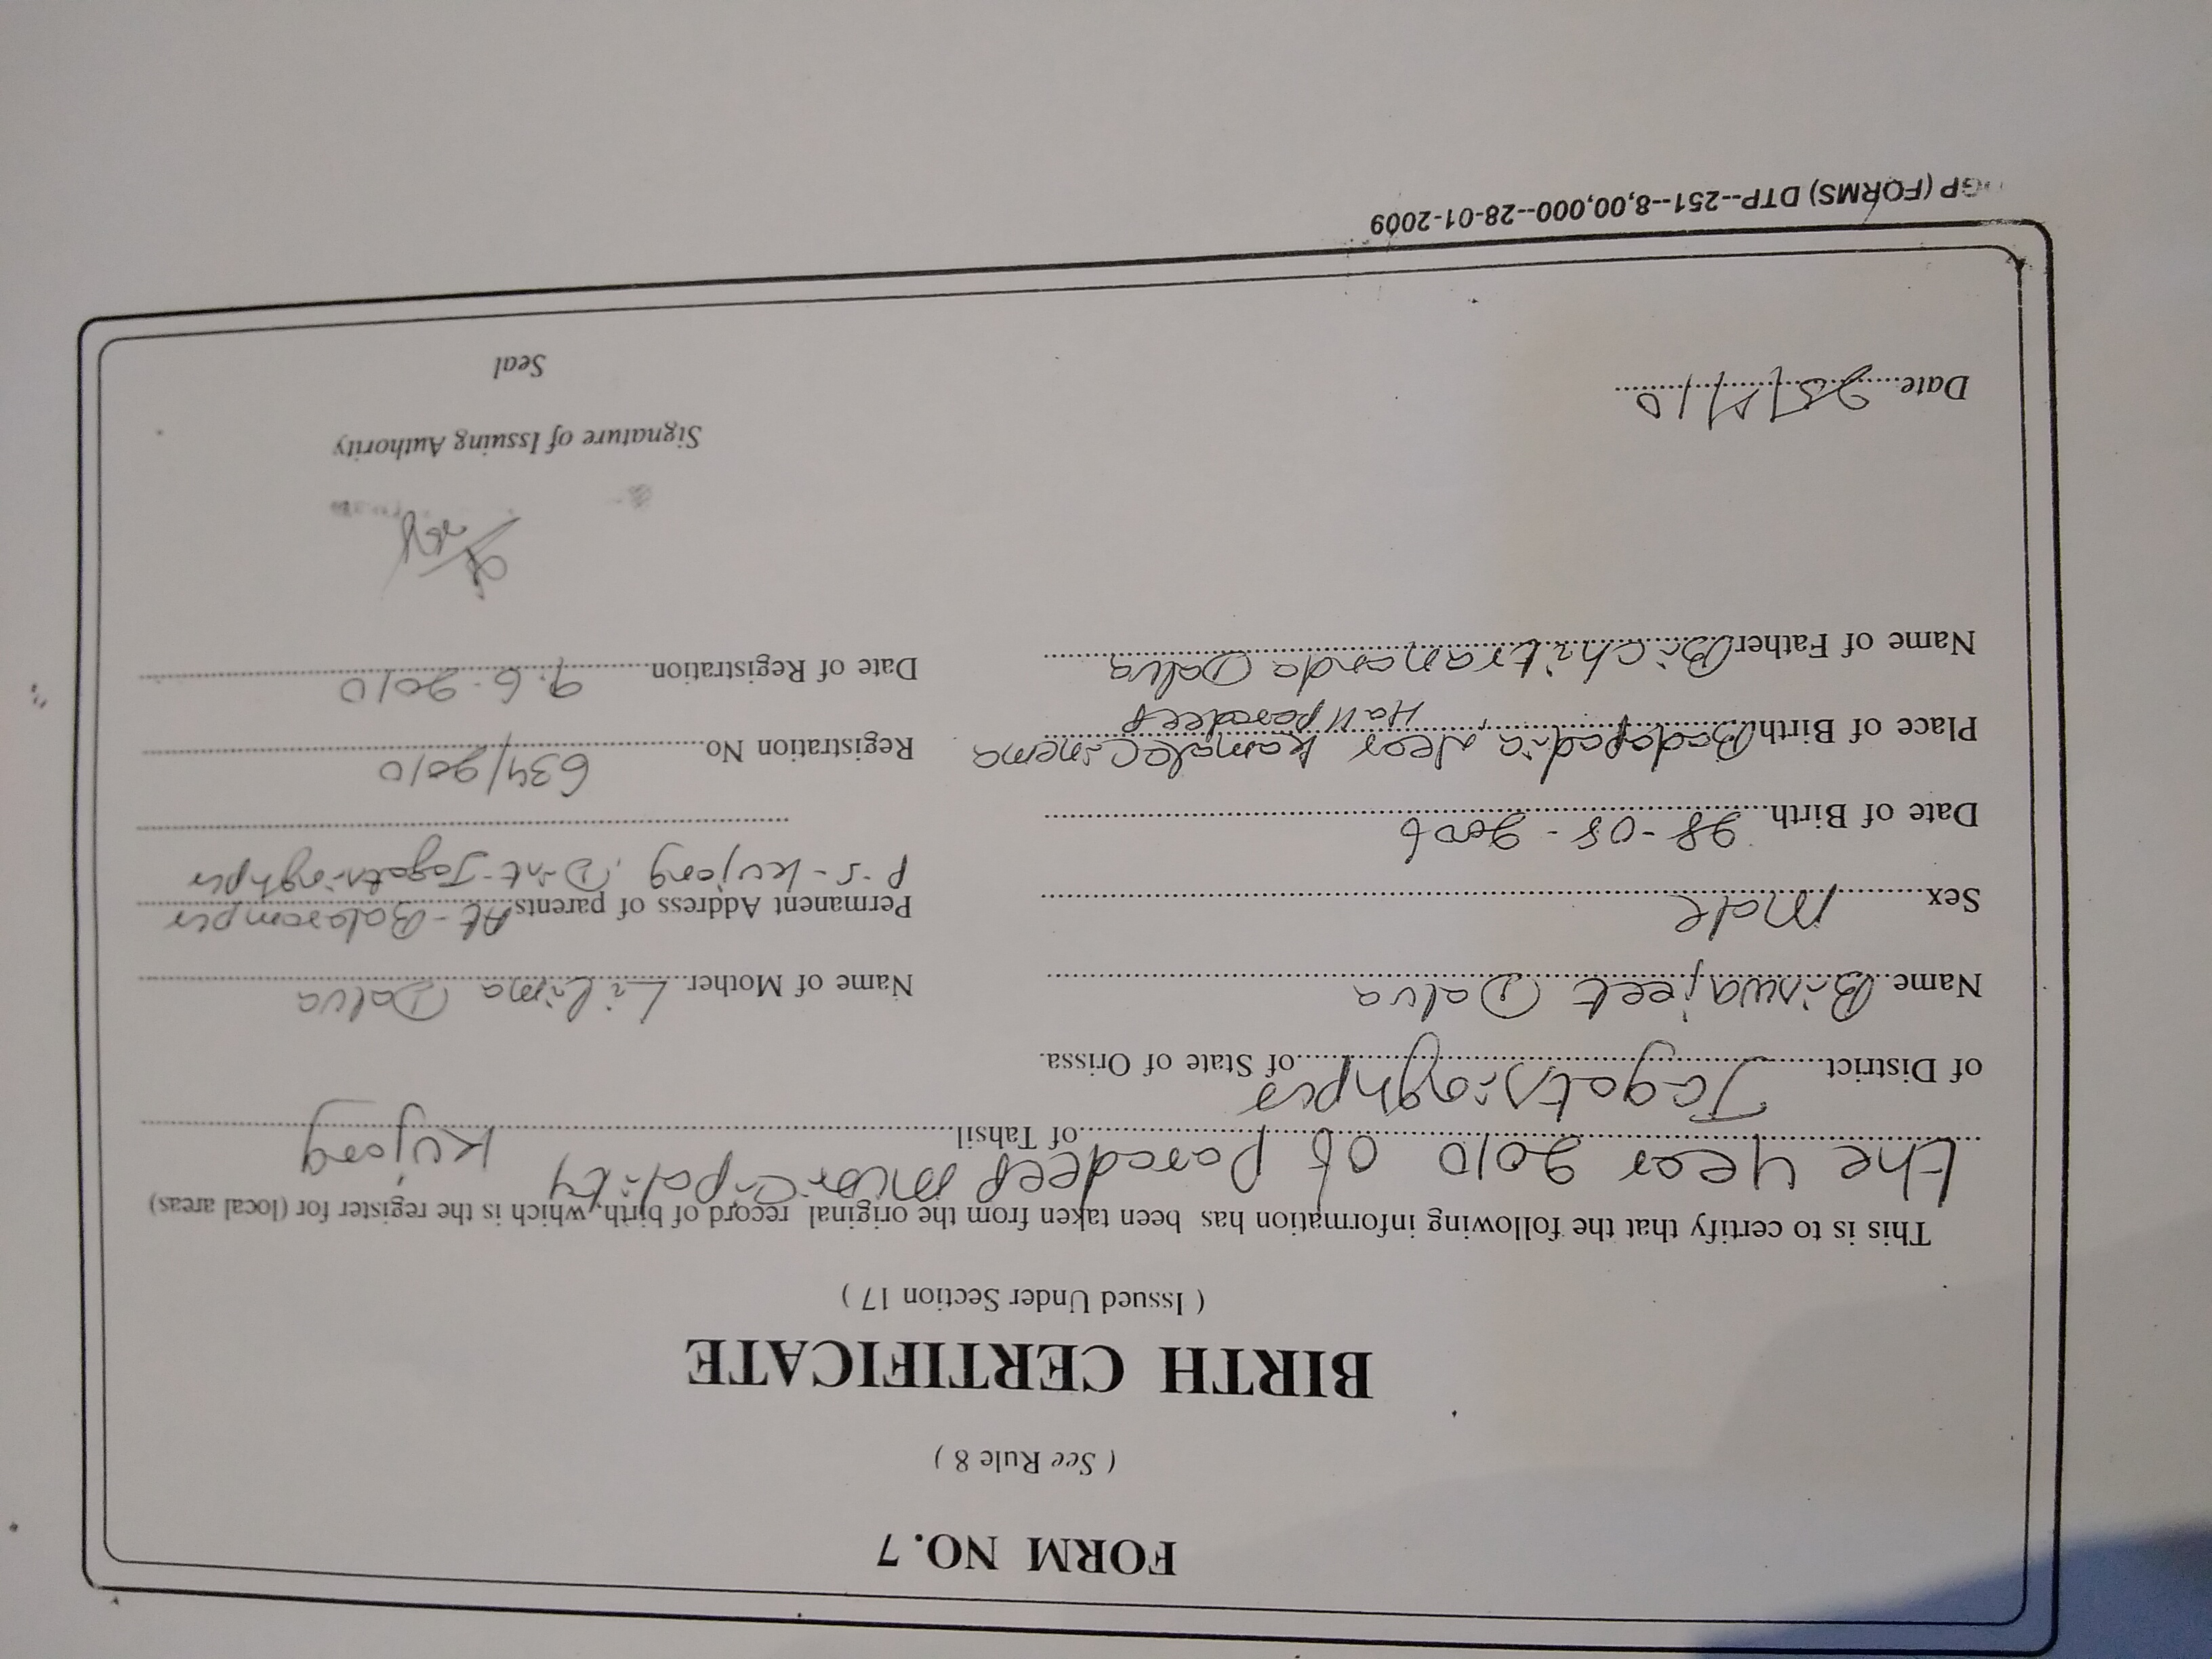 FORM NO. 7
( See Rule 8 )
BIRTH CERTIFICATE
( Issued Under Section 17 )
This is to certify that the following information has been taken from the original record of birth, which is the register for (local areas)
the year 2010 of Paradeep Municipality of Tahsil Kujang
of District Jagatsinghpur of State of Orissa.
Name Biswajeet Dalua
Sex Male
Date of Birth 28-08-2006
Place of Birth Badapadia Near Kamala Cinema
Hall Paradeep
Name of Father Bichitrananda Dalua
Name of Mother Lilima Dalua
Permanent Address of parents At-Balarampur
P.S-Kujang, Dist-Jagatsinghpur
Registration No. 634/2010
Date of Registration 9.6.2010
Signature of Issuing Authority
Seal
Date
GP (FORMS) DTP--251--8,00,000--28-01-2009